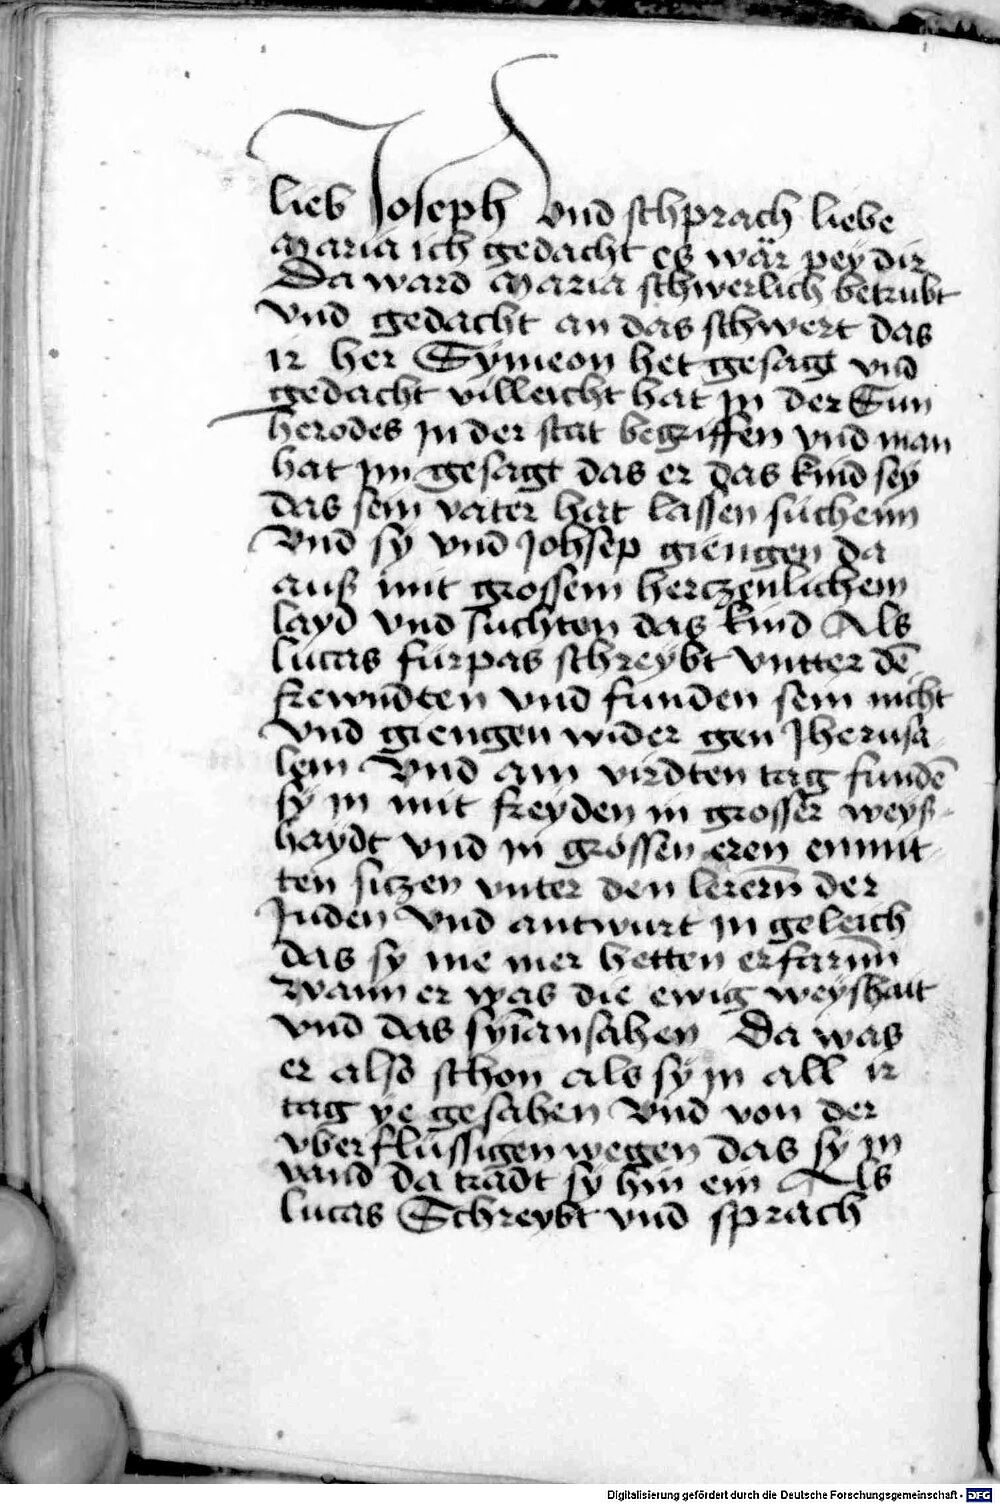 lieb Joseph vnd schprach liebe
Maria ich gedacht es wär pey dir
Da ward Maria schwerlich betrubt
vnd gedacht an das schwert das
ir her Symeon het gesagt vnd
gedacht villeicht hat in der Sun
herodes Jn der stat begriffen vnd man
hat im gesagt das er das kind sey
das sein vater hat lassen suchenn
Vnd sy vnd Johsep giengen da
auß mit grossem hertzenlichem
layd vnd suchten das kind Als
lucas fürpas schreybt vntter dē
frewndten vnd funden sein nicht
vnd giengen wider gen Jherusa-
lem Vnd am virdten tag fundē
sy in mit freyden in grosser weyß-
haydt vnd in grossen eren enmit-
ten siczen vnter den lerern̄ der
Juden Vnd antwurt in geleich
das sy nie mer hetten erfarnn
wann er was die ewig weyshait
vnd das sy an sahen Da was
er also schon als sy in all ir
tag ye gesahen Vnd von der
vberflussigen wegen das sy in
vand da tradt sy hin ein Als
lucas Schreybt vnd sprach
Digitalisierung gefördert durch die Deutsche Forschungsgemeinschaft - DFG